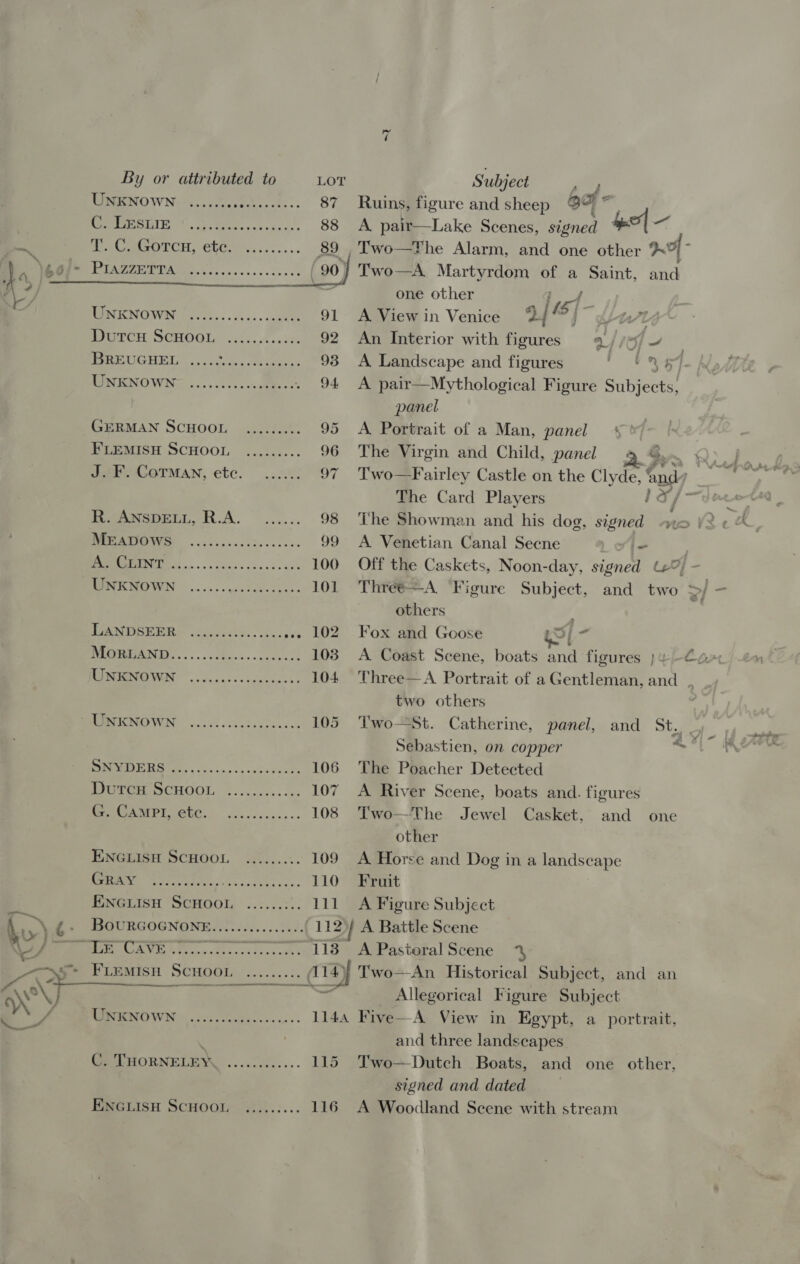 7
By or attributed to LOT Subject
UNKNOWN .................. 87 Ruins, figure and sheep
C. LESLIE .................. 88 A pair—Lake Scenes, signed
T. C. GOTCH, etc. .......... 89 Two—The Alarm, and one other
60/- PIAZZETTA .................. 90 Two—A Martyrdom of a Saint, and
one other
UNKNOWN .................. 91 A View in Venice
DUTCH SCHOOL ............ 92 An Interior with figures
BREUGHEL .................. 93 A Landscape and figures
UNKNOWN .................. 94 A pair—Mythological Figure Subjects,
panel
GERMAN SCHOOL ......... 95 A Portrait of a Man, panel
FLEMISH SCHOOL ......... 96 The Virgin and Child, panel
J. F. COTMAN, etc. ...... 97 Two—Fairley Castle on the Clyde, and
The Card Players
R. ANSDELL, R.A. ...... 98 The Showman and his dog, signed
MEADOWS .................. 99 A Venetian Canal Secne
A. CLINT .................. 100 Off the Caskets, Noon-day, signed
UNKNOWN .................. 101 Three—A Figure Subject, and two
others
LANDSEER .................. 102 Fox and Goose
MORLAND .................. 103 A Coast Scene, boats and figures
UNKNOWN .................. 104 Three—A Portrait of a Gentleman, and
two others
UNKNOWN .................. 105 Two—St. Catherine, panel, and St.
Sebastien, on copper
SNYDERS .................. 106 The Poacher Detected
DUTCH SCHOOL ............ 107 A River Scene, boats and. figures
G. CAMPI, etc. ............ 108 Two—The Jewel Casket, and one
other
ENGLISH SCHOOL ......... 109 A Horse and Dog in a landscape
GRAY .................. 110 Fruit
ENGLISH SCHOOL ......... 111 A Figure Subject
BOURGOGNONE............... 112 A Battle Scene
LE CAVE .................. 113 A Pastoral Scene
FLEMISH SCHOOL ......... 114 Two—An Historical Subject, and an
Allegorical Figure Subject
UNKNOWN .................. 114A Five—A View in Egypt, a portrait,
and three landscapes
C. THORNELEY ............ 115 Two—Dutch Boats, and one other,
signed and dated
ENGLISH SCHOOL ......... 116 A Woodland Scene with stream